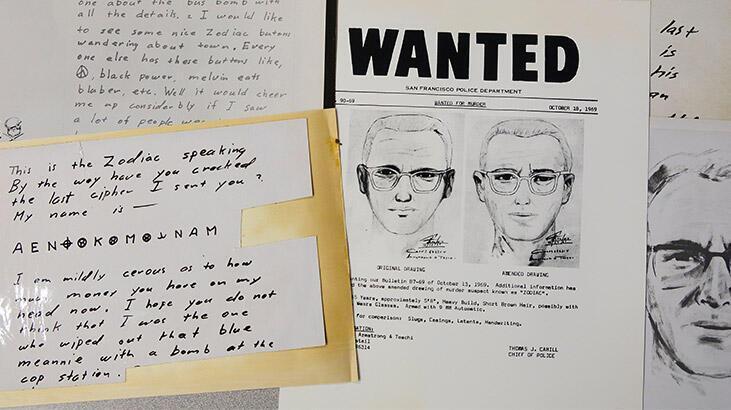 one about the bus bomb with
all the details. I would like
to see some nice Zodiac butons
wandering about town. Every
one else has these buttons like,
black power, melvin eats
blubber, etc. Well it would cheer
me up considerbly if I saw
a lot of people
This is the Zodiac speaking
By the way have you cracked
the last cipher I sent you?
My name is —
AEN⊕⊗K⊗M⊗⅃NAM
I am mildly cerous as to how
much money you have on my
head now. I hope you do not
think that I was the one
who wiped out that blue
meannie with a bomb at the
cop station.
WANTED
SAN FRANCISCO POLICE DEPARTMENT
90-69 WANTED FOR MURDER OCTOBER 18, 1969
ORIGINAL DRAWING AMENDED DRAWING
our Bulletin 87-69 of October 13, 1969. Additional information has
the above amended drawing of murder suspect known as "ZODIAC".
Years, approximately 5'8", Heavy Build, Short Brown Hair, possibly with
Wears Glasses. Armed with 9 MM Automatic.
for comparison: Slugs, Casings, Latents, Handwriting.
Armstrong & Toschi
THOMAS J. CAHILL
CHIEF OF POLICE
last
is
his
an